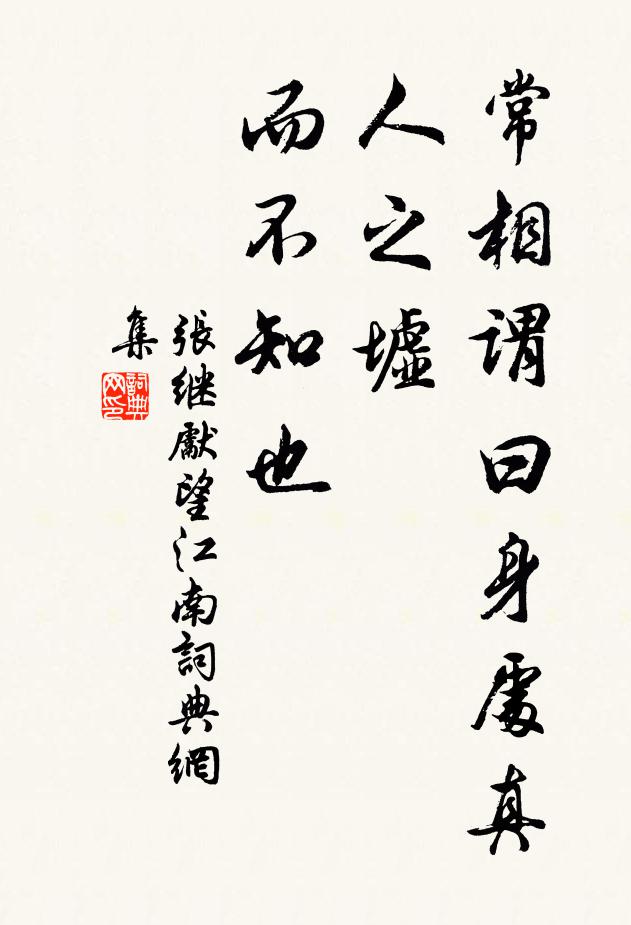 常相謂曰身處真
人之墟
而不知也
張继獻望江南詞典網
集
詞典
网印